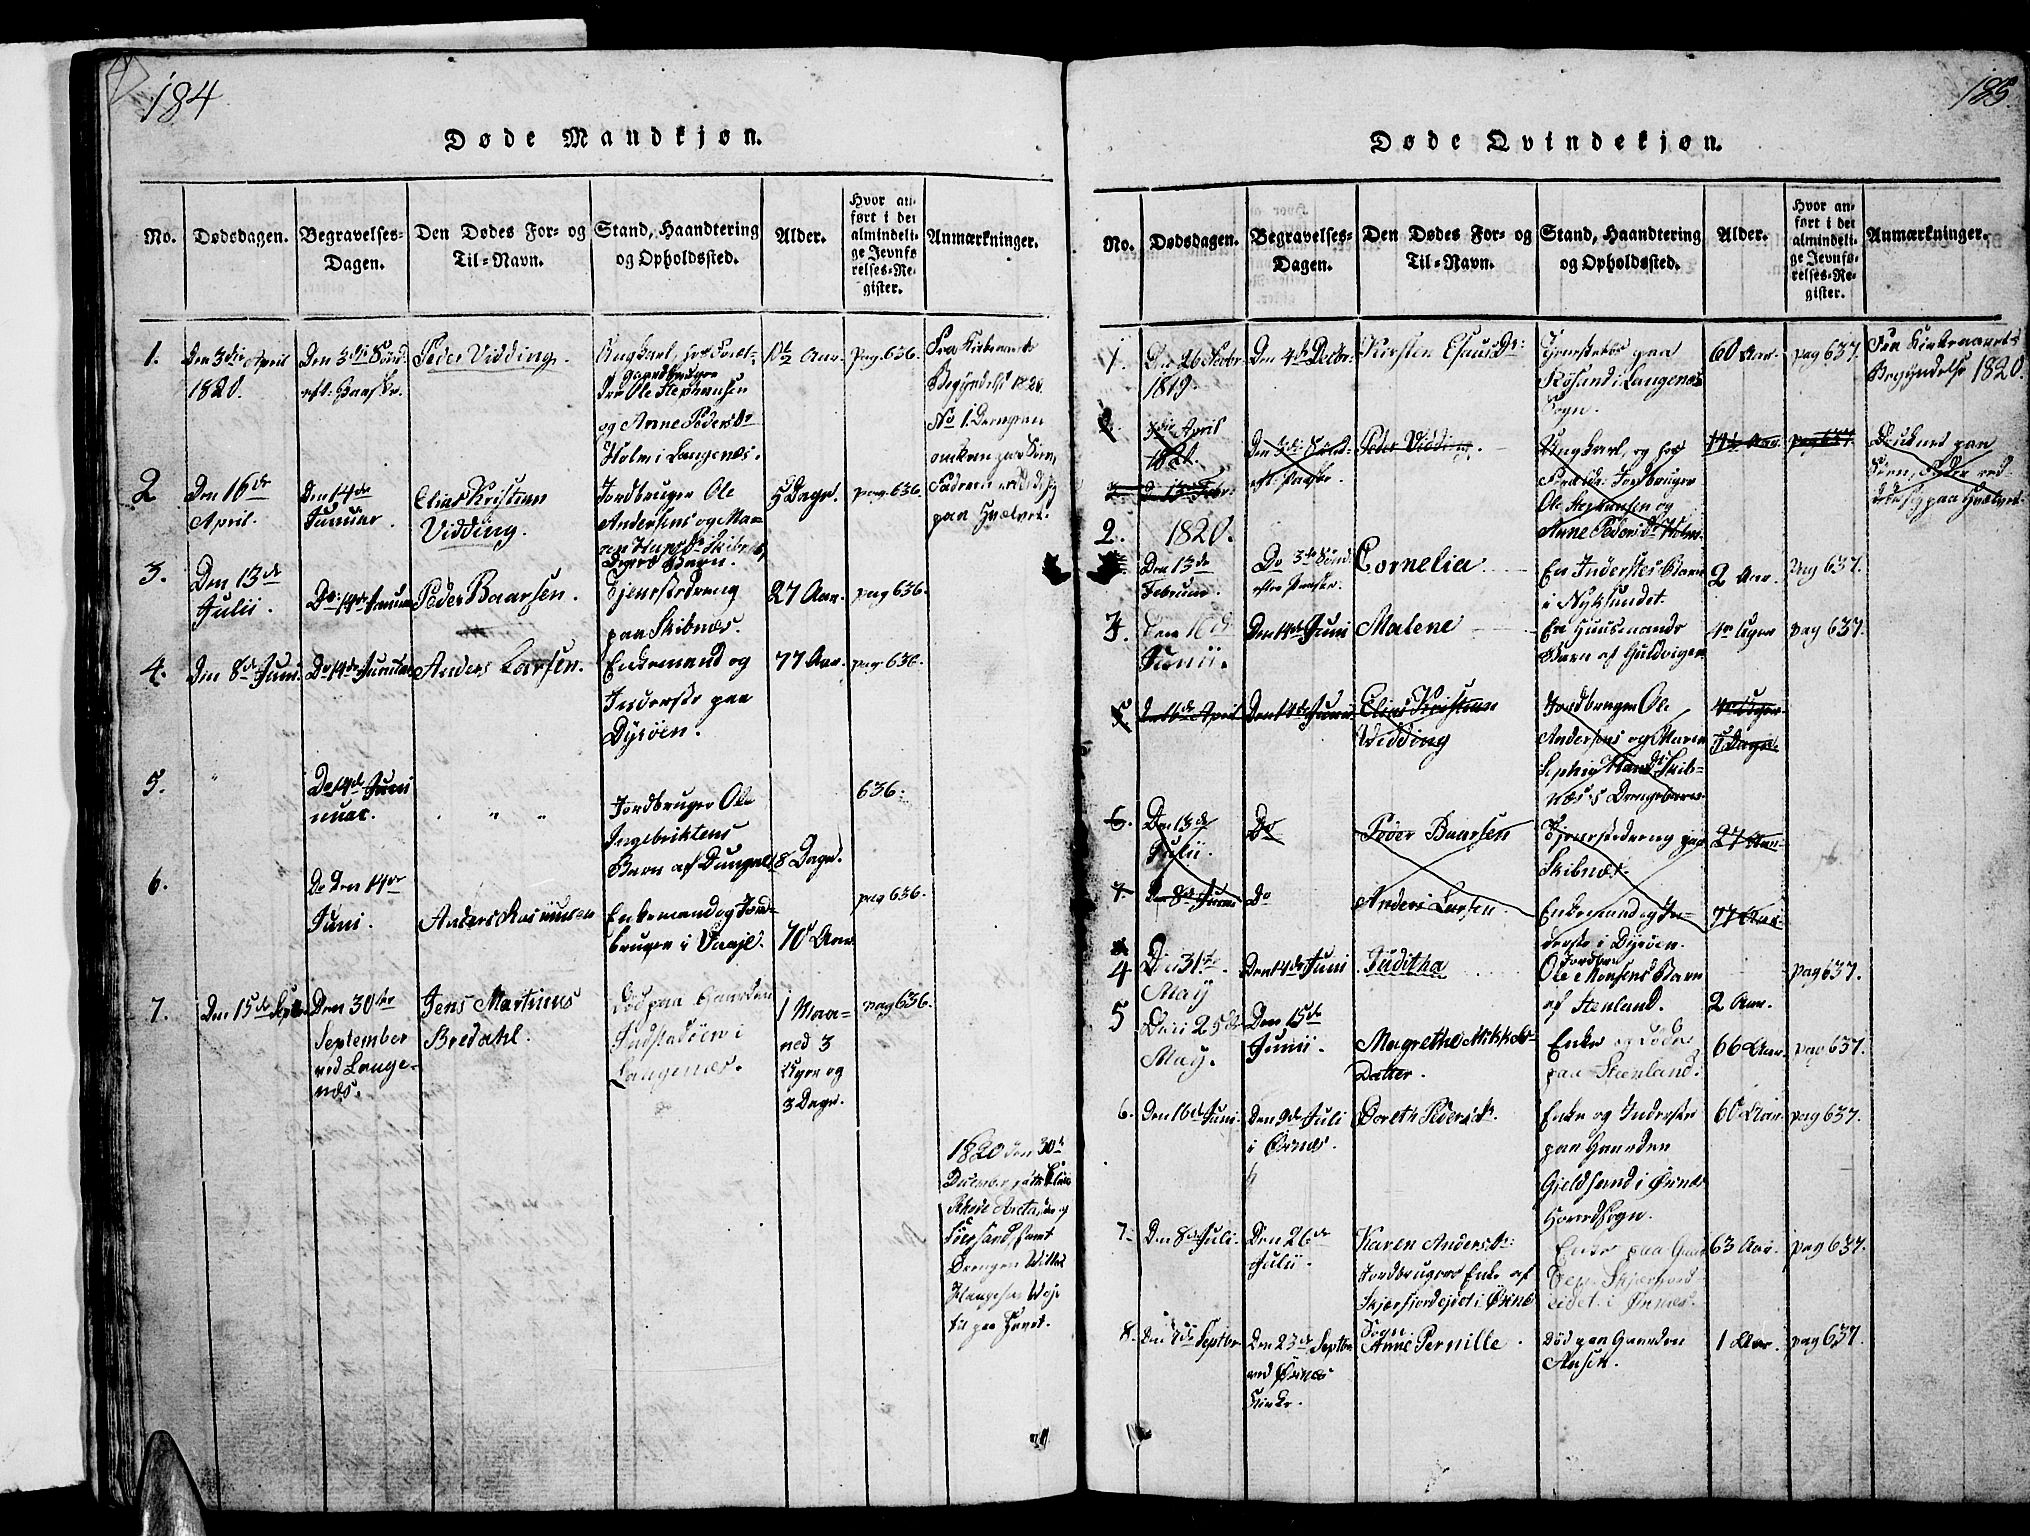 184
Døde Mandkjøn.
No.
Dødsdagen.
Begravelses-
Dagen.
Den Dødes For- og
Til-Navn.
Stand, Haandtering
og Opholdssted.
Alder.
Hvor an-
ført i det
almindeli-
ge Jevnfø-
relses-Re-
gister.
Anmærkninger.
1.
Den 3die April
1820.
Den 3die Sønd.
eft: Paaske.
Peder Vidding.
Ungkarl, hos Foræl-
Gaardbruger
dre Ole Stephansen
og Anne Pedersdr
Holm i Langenæs.
pag. 636.
Fra Kirkeaarets
Begyndelse 1820.
No 1. Drengen
omkom paa Søen,
Faderen ved sig
paa Hvælvet.
2
Den 16de
April.
Den 14de
Januar.
Elias Kristian
Vidding.
Jordbruger Ole
Andersens og Ma-
ren Hansdr Skibnæs
Drengebarn.
5 Dage.
pag. 636.
3.
Den 13de
Julii.
Do 14de Januar
Peder Baarsen.
Tjenestedreng
paa Skibnæs.
27 Aar.
pag 636.
4.
Den 8de Juni.
Do 14de Januar
Anders Larsen.
Enkemand og
Inderste paa
Dyrøen.
77 Aar.
pag. 636.
5.
Do 14de Juni
nuar.
Jordbruger Ole
Ingebriktens
Barn af
8 Dage.
636.
6.
Do Den 14de
Juni.
Anders Rasmusen
Enkemand og Jord-
bruger i
70 Aar
pag 636.
7.
Den 15de Sept.
Den 30te
September
ved Lange-
næs.
Jens Martinus
Bredahl.
Død paa Gaarden
i
Langenæs.
1 Maa-
ned 3
Uger og
3 Dage.
pag 636.
1820 den 30te
December
samt
Drengen
paa Havet.
185.
Døde Qvindekjøn.
No.
Dødsdagen.
Begravelses-
Dagen.
Den Dødes For- og
Til-Navn.
Stand, Haandtering
og Opholdssted.
Alder.
Hvor an-
ført i det
almindeli-
ge Jevnfø-
relses-Re-
gister.
Anmærkninger.
1.
Den 26
1819.
Den 4de Decbr.
Kirsten Esaiasdr:
paa
i Langenæs
Sogn.
60 Aar.
pag 637.
Fra Kirkeaarets
Begyndelse 1820.
2.
3die April
1820.
Den 3die Sønd.
eft. Paaske.
Peder Vidding.
Ungkarl, og hos
Foreldr. Jordbruger
Ole Stephansen og
Anne Pedersdr Holm.
pag 637.
Druknet paa
Søen, Fader ved
sig paa Hvælvet.
3.
Den 13de Febr.
2.
1820.
Den 13de
Februar.
Do 3die Sønd.
efter Paaske.
Cornelia
En Inderstes Barn
i Nyksundet.
2 Aar.
Pag 637.
3.
Juni.
Den 14de Juni
Malene
En Huusmands
Barn af Guldvigen
Uger
pag 637.
5
Den 16de April
Den 14de Juni
Elias Kristian
Vidding
Jordbruger Ole
Andersens og Maren
Sophie Hansdr Skib-
næss Drengebarn.
Uger
5 Dage.
6.
Den 13de
Julii.
Do
Peder Baarsen
Tjenestedreng paa
Skibnæs.
27 Aar.
7.
Den 8de Juni
Do
Anders Larsen.
Enkemand og In-
derste i Dyrøen.
77 Aar.
4
Den 31te
May
Den 14de Juni
Juditha
Jordbr.
Ole Monsens Barn
af Stenland.
2 Aar.
pag 637.
5
Den 25de
May.
Den 15de
Junii.
Magrethe Mikkels-
Datter.
Enke og
paa Steenland.
66 Aar.
pag 637.
6.
Den 16de Juni
Den 9de Juli
i Øxnæs.
Dorethe Pedersdr.
Enke og Inderste
paa Gaarden
i Øxnæs
Hovedsogn.
60 Aar.
pag 637.
7.
Den 8de Juli.
Den 26de
Julii.
Karen Andersdr:
Jordbrugers Enke af
Skjerfjordejdet i Øxnæs
Sogn.
Enke paa Gaar
den Skjerfjord
eidet i Øxnæs.
63 Aar.
pag 637.
8.
Den 7de Septbr
Den 23de Septbr
ved Øxnæs
Kirke.
Anne Pernille.
Død paa Gaarden
1 Aar.
pag 637.